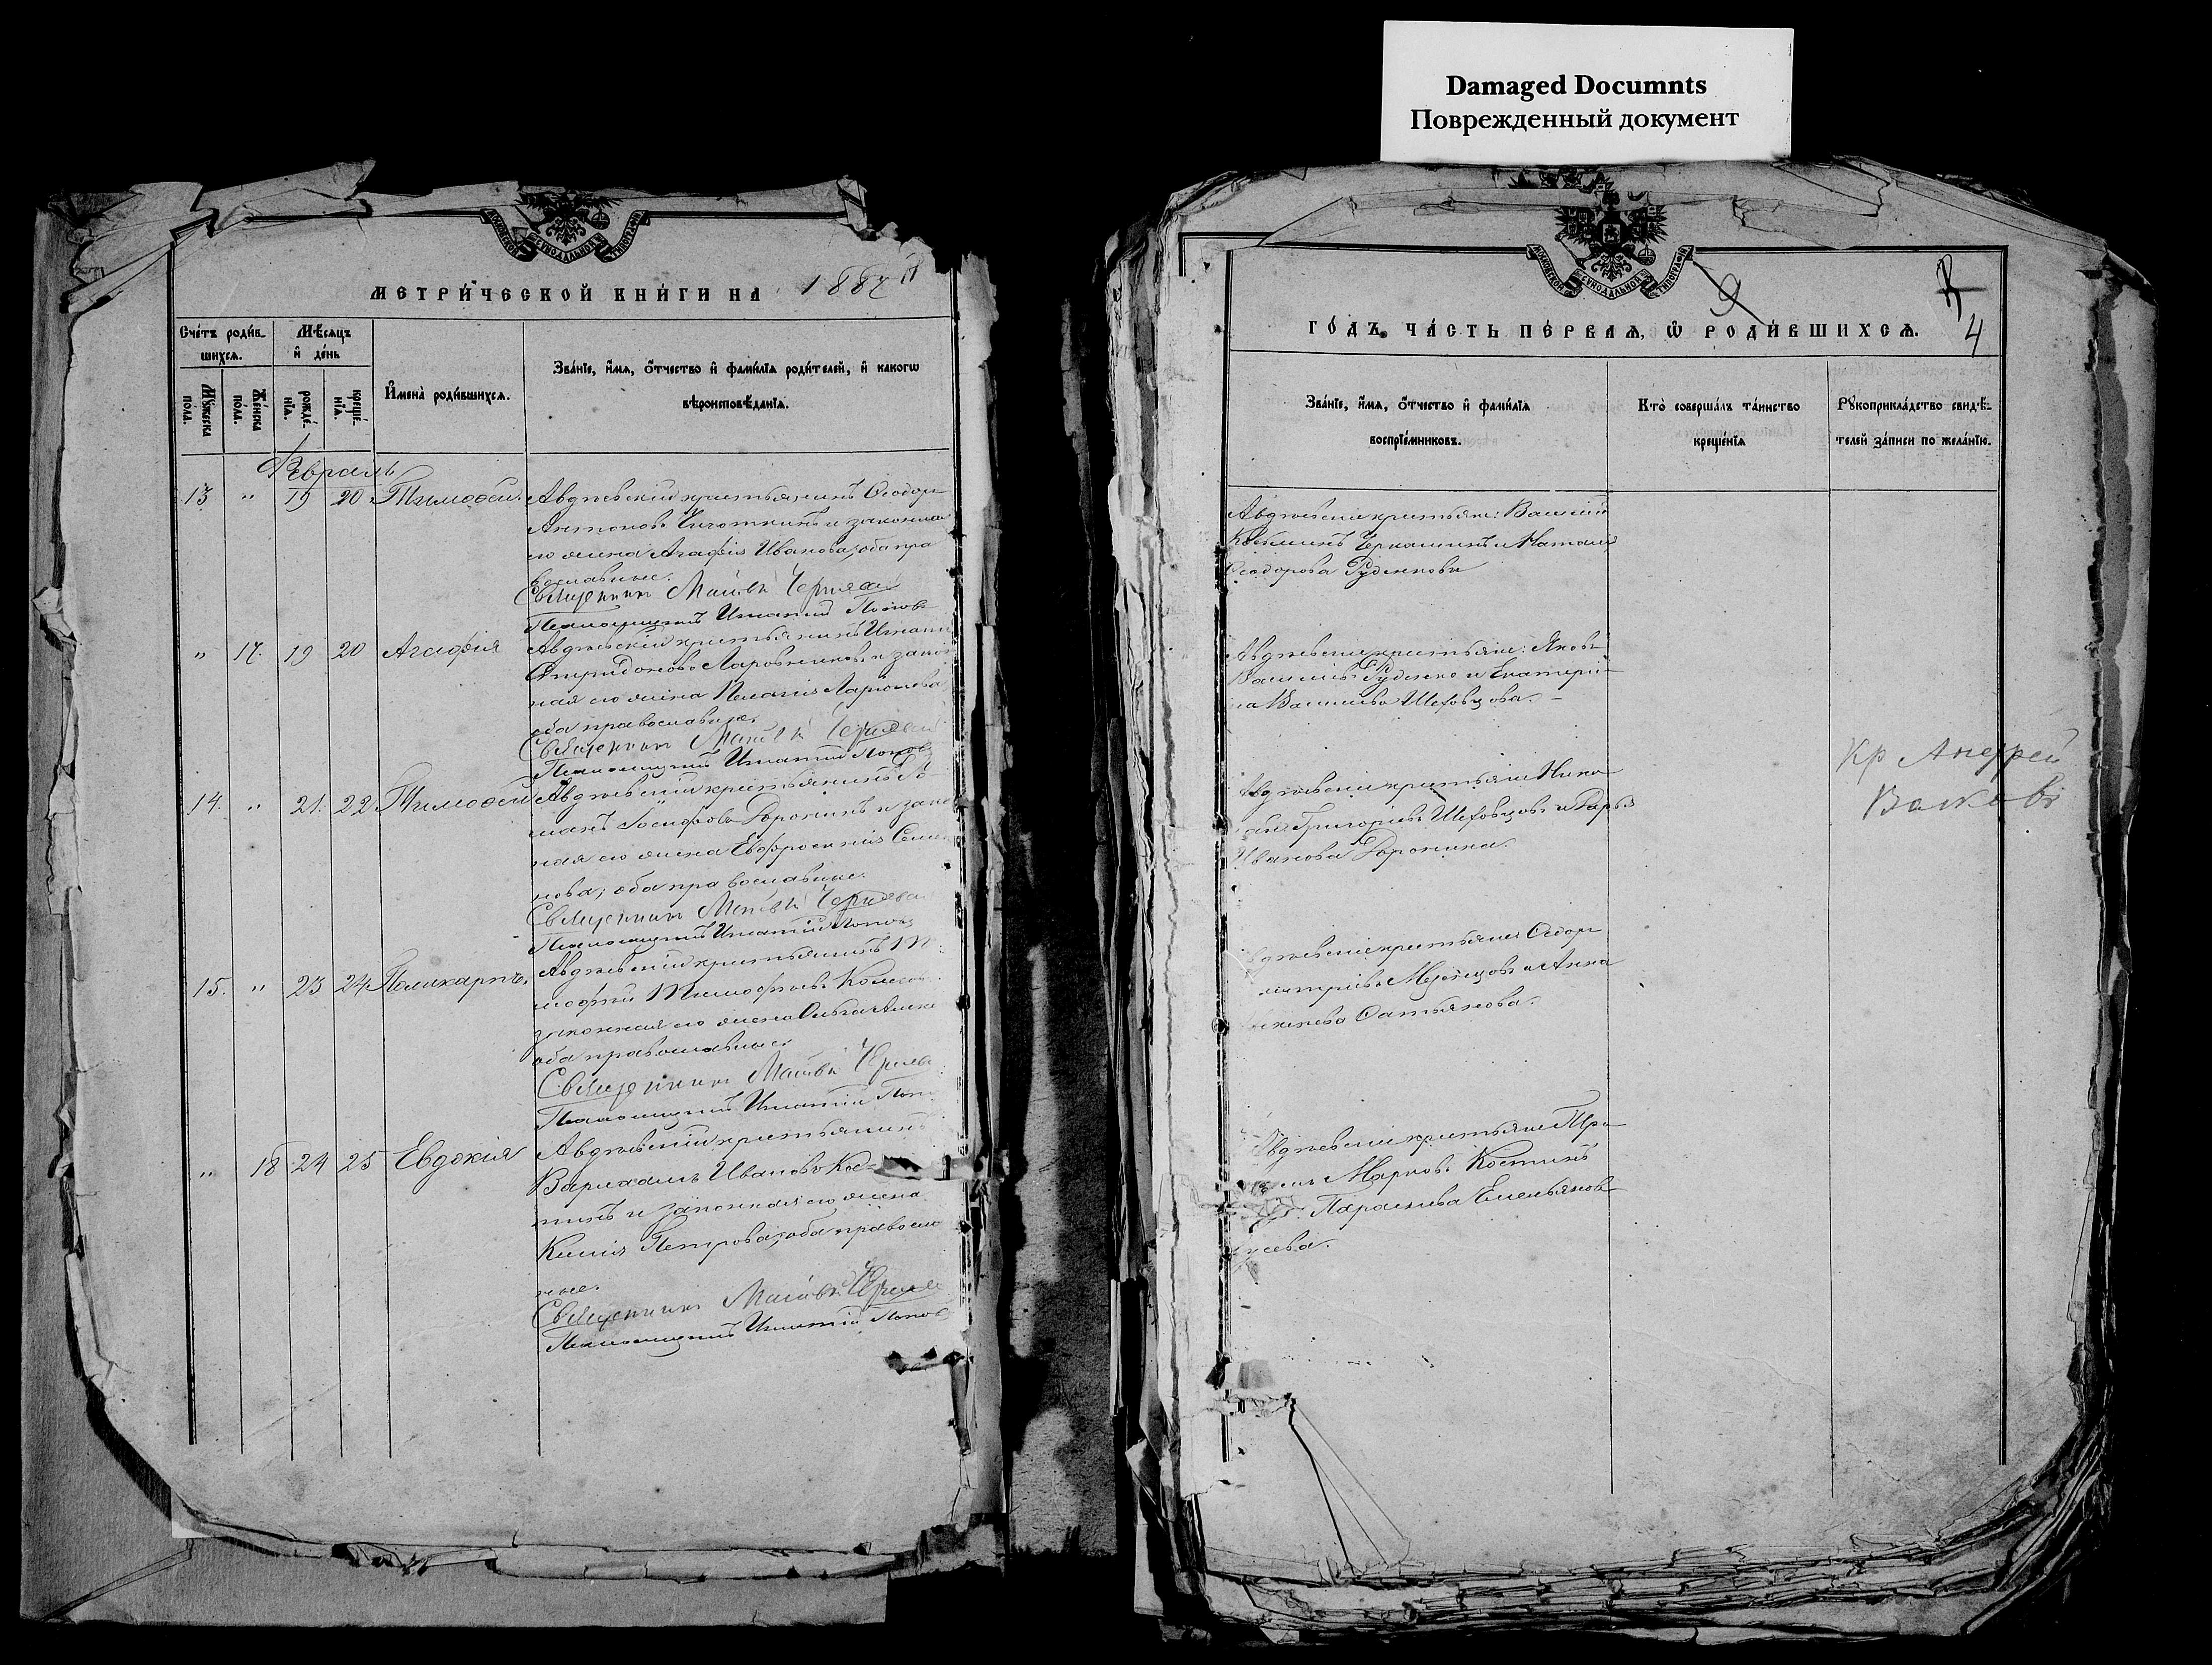 Damaged Documnts
Поврежденный документ
МОСКОВСКОЙ СѴНОДАЛЬНОЙ ТИПОГРАФІИ
МЕТРИ́ЧЕСКОЙ КНИ́ГИ НА 1887
Сче́тъ роди́в
шихсѧ.
Мѣ́сѧцъ
и҆ де́нь
Мꙋ́жеска
по́ла.
Же́нска
по́ла.
рожде́
нїѧ.
креще́
нїѧ.
И҆мена̀ роди́вшихсѧ.
Зва́нїе, и҆́мѧ, ѻ҆́тчество и҆ фами́лїѧ роди́телей, и҆ како́гѡ
вѣроисповѣ́данїѧ.
Февраль
13 " 19 20 Тимоѳей Авдѣевскій крестьянинъ Ѳеодоръ
Антоновъ и законная
его жена Агафія Иванова; оба пра
вославные.
Священник Матвѣй Черняев
Псаломщикъ Игнатій Попов
" 17. 19 20 Агафія Авдѣевскій крестьянинъ Игнатій
Спиридоновъ и закон
ная его жена Пелагія Ларіонова
оба православные.
Священник Матвѣй Черняев
Псаломщикъ Игнатій Попов
14. " 21. 22 Тимоѳей Авдѣевскій крестьянинъ
Іосифовъ Доронинъ и закон
ная его жена Евфросинія Семе
нова; оба православные.
Священник Матвѣй Черняев
Псаломщикъ Игнатій Попов
15. " 23 24 Поликарпъ. Авдѣевскій крестьянинъ Ти
моѳей Тимоѳеевъ
законная его жена Ольга
оба православные.
Священник Матвѣй Черняев
Псаломщикъ Игнатій Попов
" 18 24 25 Евдокія Авдѣевскій крестьянинъ
Варлаамъ Ивановъ Кос=
тинъ и законная его жена
Ксенія Петрова; оба правосла
ные.
Священник Матвѣй Черняев
Псаломщикъ Игнатій Попов
МОСКОВСКОЙ СѴНОДАЛЬНОЙ ТИПОГРАФІИ
9
4
ГО́ДЪ, ЧА́СТЬ ПЕ́РВАѦ, Ѡ҆ РОДИ́ВШИХСѦ.
Зва́нїе, и҆́мѧ, ѻ҆́тчество и҆ фами́лїѧ
воспрїе́мниковъ.
Кто̀ соверша́лъ та́инство
креще́нїѧ
Рꙋкоприкла́дство свидѣ́
телей за́писи по жела́нїю.
Авдѣевскіе крестьяне: Василій
Косминъ и Наталія
Ѳеодорова Руденкова
Авдѣевскіе крестьяне: Яковъ
Васильевъ Руденко и Екатери
на Васильева Шеховцова.
Авдѣевскіе крестьяне Нико
лай Григорьевъ Шеховцовъ и Дарья
Иванова Доронина.
крестьяне Ѳедоръ
и Анна
Кр Андрей
Волковъ
Авдѣевскіе крестьяне
Марковъ Костинъ
Параскева Емельянова
Гусева.